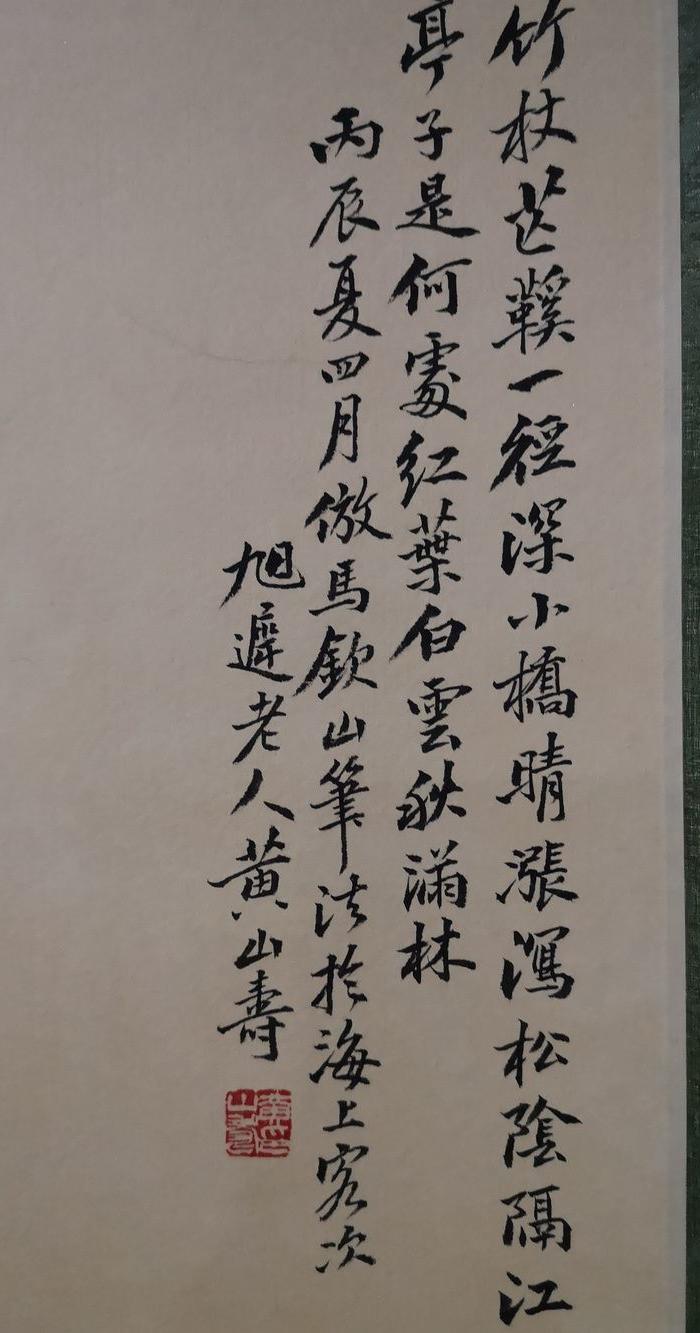 竹杖芒鞵一徑深小橋晴漲瀉松陰隔江
亭子是何處紅葉白雲秋滿林
丙辰夏四月倣馬欽山筆法於海上客次
旭遲老人黃山壽